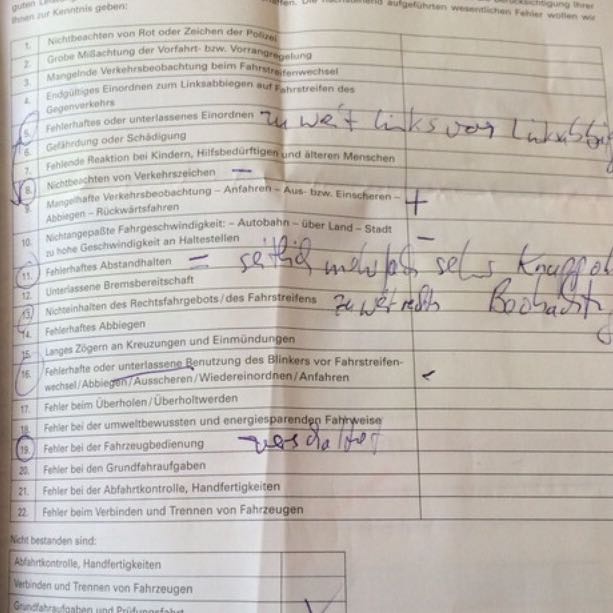 aufgeführten wesentlichen Fehler wollen wir
Ihnen zur Kenntnis geben:
1. Nichtbeachten von Rot oder Zeichen der Polizei
2. Grobe Mißachtung der Vorfahrt- bzw. Vorrangregelung
3. Mangelnde Verkehrsbeobachtung beim Fahrstreifenwechsel
4. Endgültiges Einordnen zum Linksabbiegen auf Fahrstreifen des
Gegenverkehrs
5. Fehlerhaftes oder unterlassenes Einordnen zu weit links vor
6. Gefährdung oder Schädigung
7. Fehlende Reaktion bei Kindern, Hilfsbedürftigen und älteren Menschen
8. Nichtbeachten von Verkehrszeichen –
9. Mangelhafte Verkehrsbeobachtung – Anfahren – Aus- bzw. Einscheren –
Abbiegen – Rückwärtsfahren +
10. Nichtangepaßte Fahrgeschwindigkeit: – Autobahn – über Land – Stadt –
zu hohe Geschwindigkeit an Haltestellen
11. Fehlerhaftes Abstandhalten = seitlich mehrfach sehr knapp
12. Unterlassene Bremsbereitschaft
13. Nichteinhalten des Rechtsfahrgebots/des Fahrstreifens zu weit rechts
14. Fehlerhaftes Abbiegen
15. Langes Zögern an Kreuzungen und Einmündungen
16. Fehlerhafte oder unterlassene Benutzung des Blinkers vor Fahrstreifen-
wechsel/Abbiegen/Ausscheren/Wiedereinordnen/Anfahren
17. Fehler beim Überholen/Überholtwerden
18. Fehler bei der umweltbewussten und energiesparenden Fahrweise
19. Fehler bei der Fahrzeugbedienung verschaltet
20. Fehler bei den Grundfahraufgaben
21. Fehler bei der Abfahrtkontrolle, Handfertigkeiten
22. Fehler beim Verbinden und Trennen von Fahrzeugen
Nicht bestanden sind:
Abfahrtkontrolle, Handfertigkeiten
Verbinden und Trennen von Fahrzeugen
Grundfahraufgaben und Prüfungsfahrt